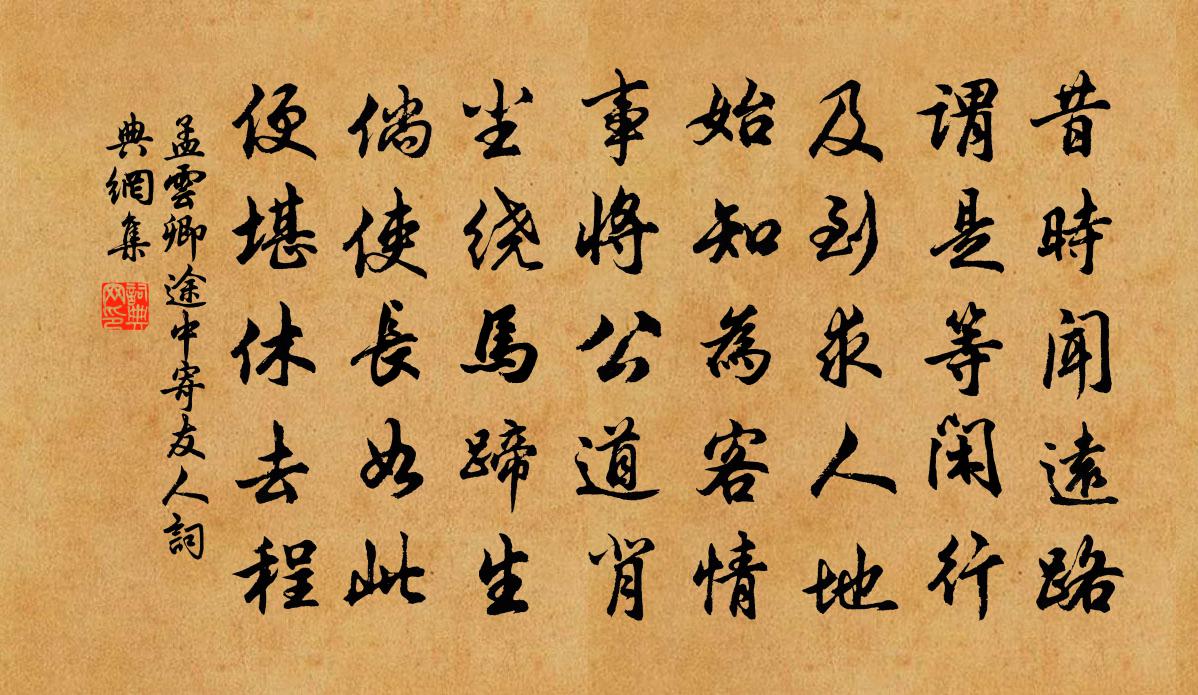 昔時聞遠路
謂是等閑行
及到求人地
始知為客情
事將公道肖
坐绕馬蹄生
倘使長如此
便堪休去程
孟雲卿途中寄友人詞
典網集
詞典網印